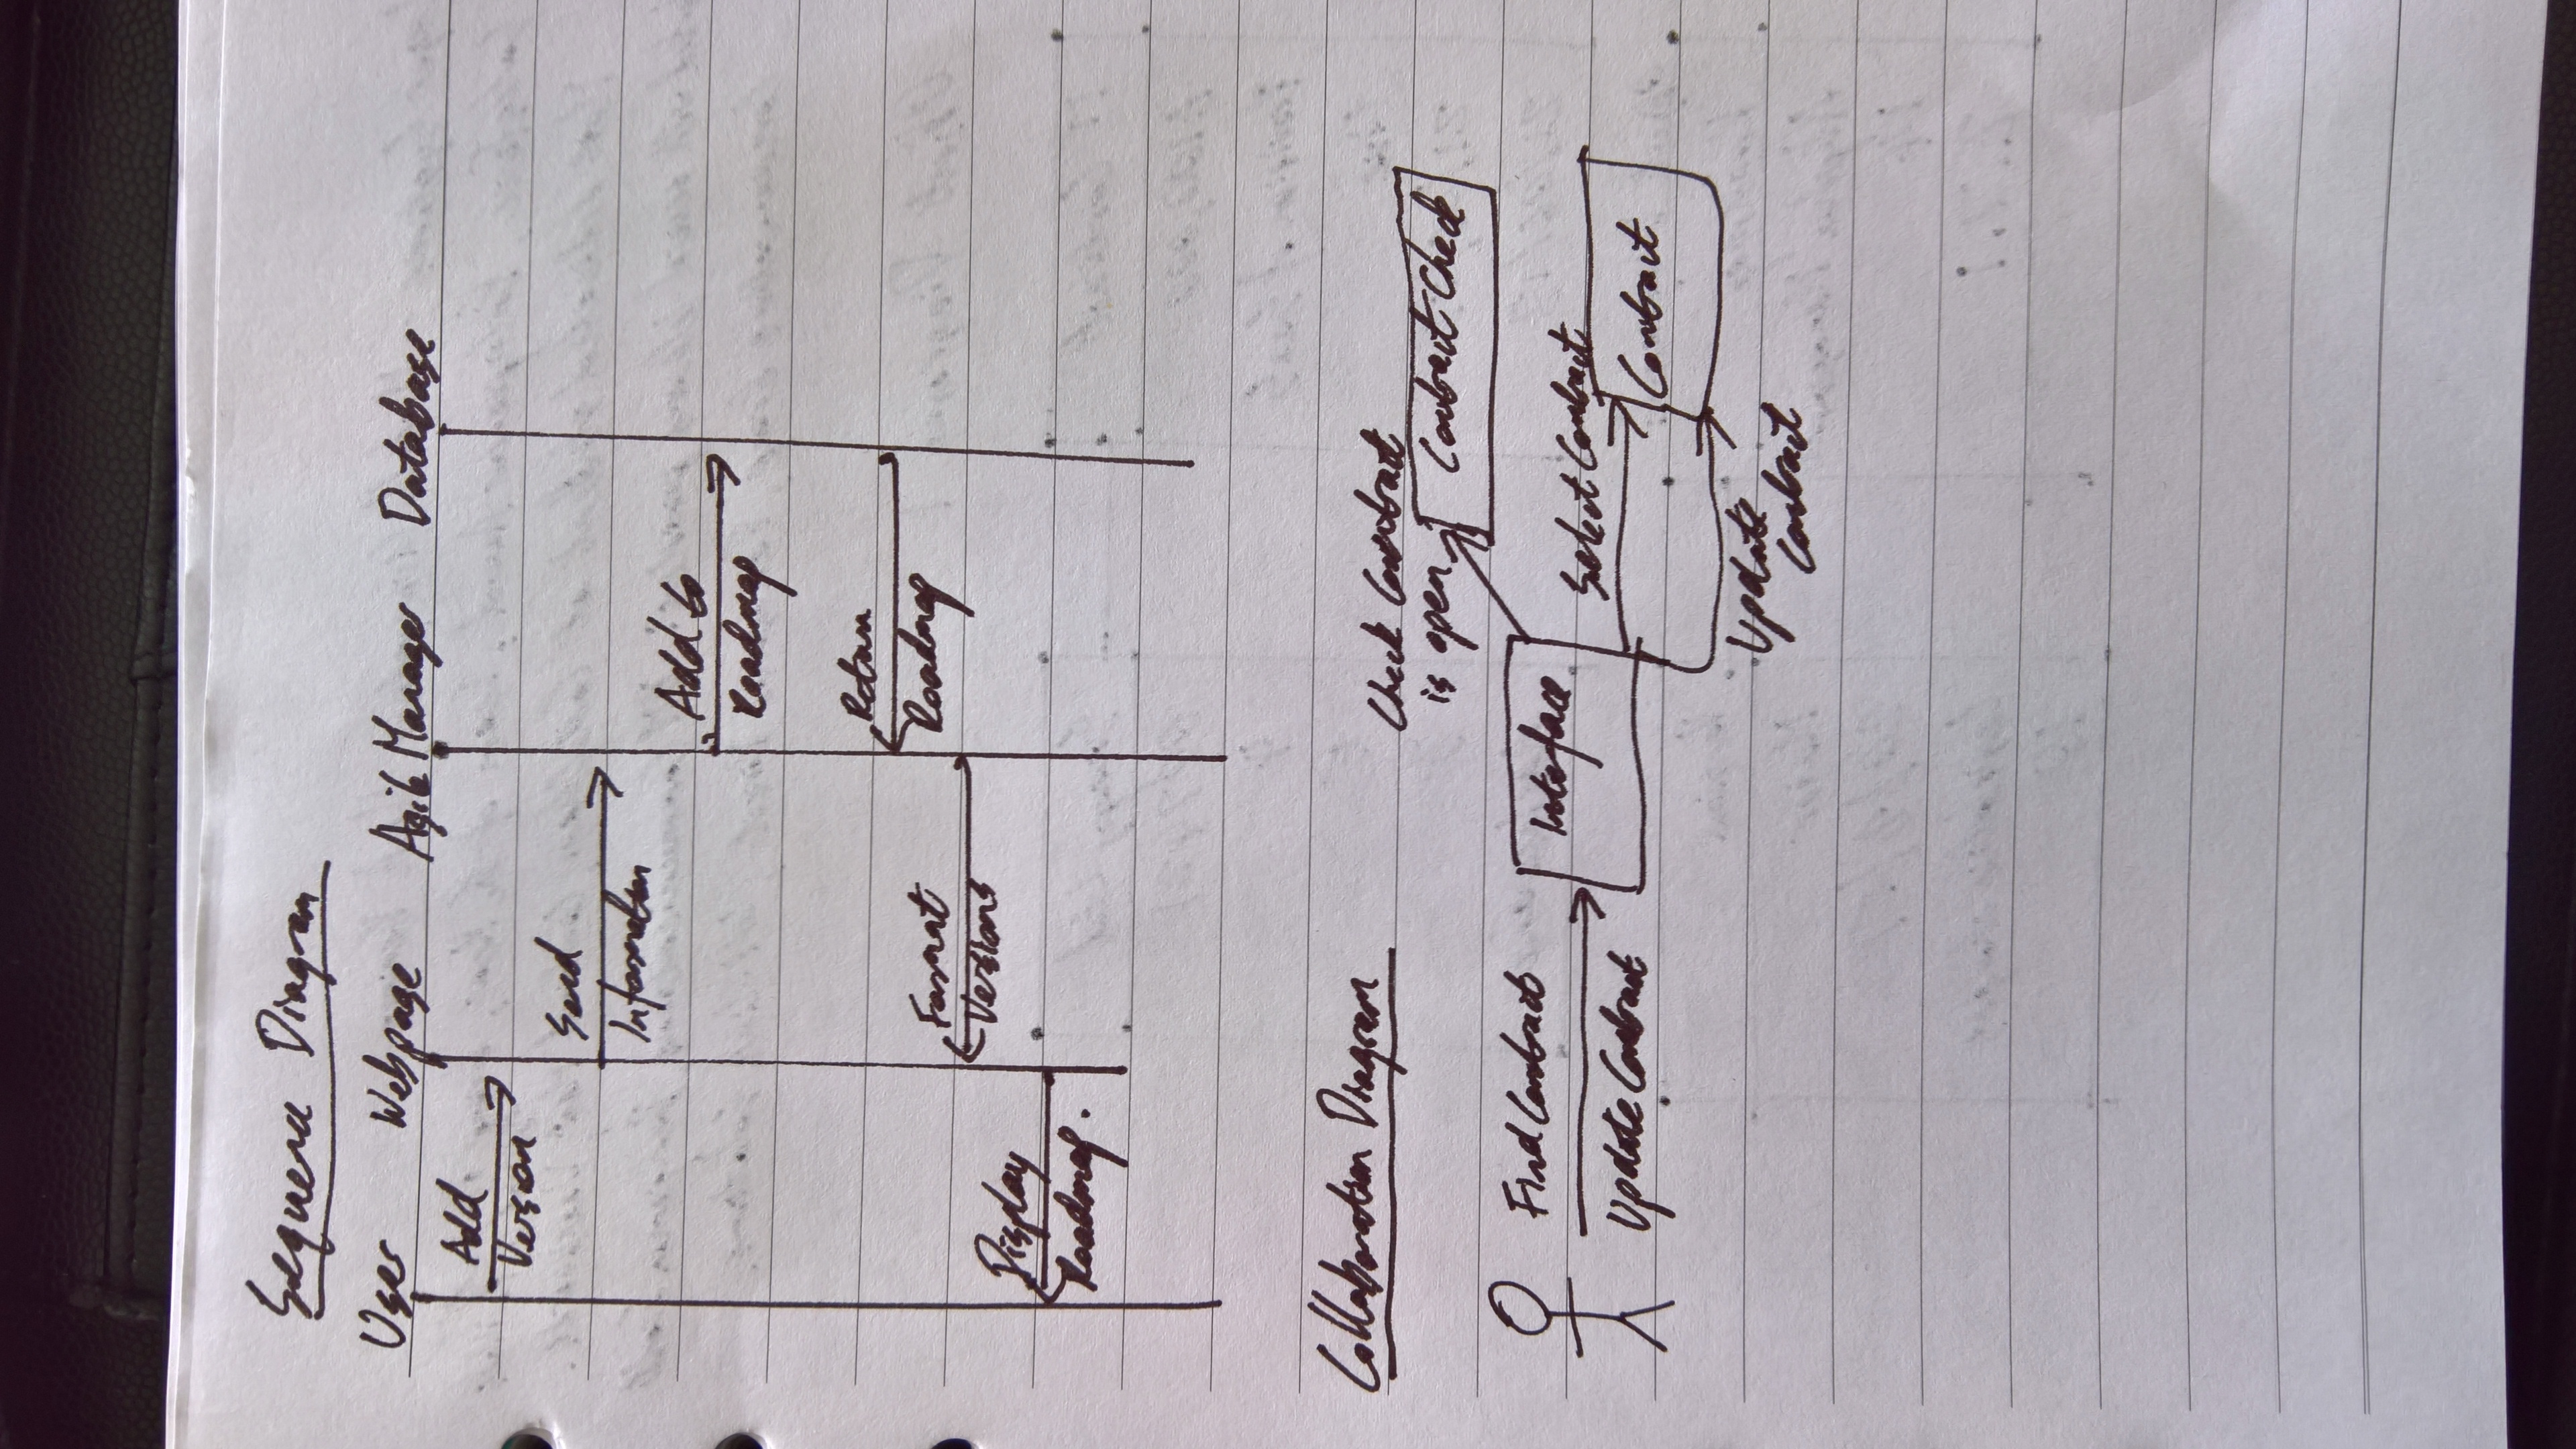 Sequence Diagram
User Webpage Agile Manager Database
Add
Version
Send
Information
Add to
Roadmap
Return
Roadmap
Format
Versions
Display
Roadmap.
Collaboration Diagram
Check Contract
is open
Contract Check
Find Contract
Update Contract
Interface
Select Contract
Contract
Update
Contract